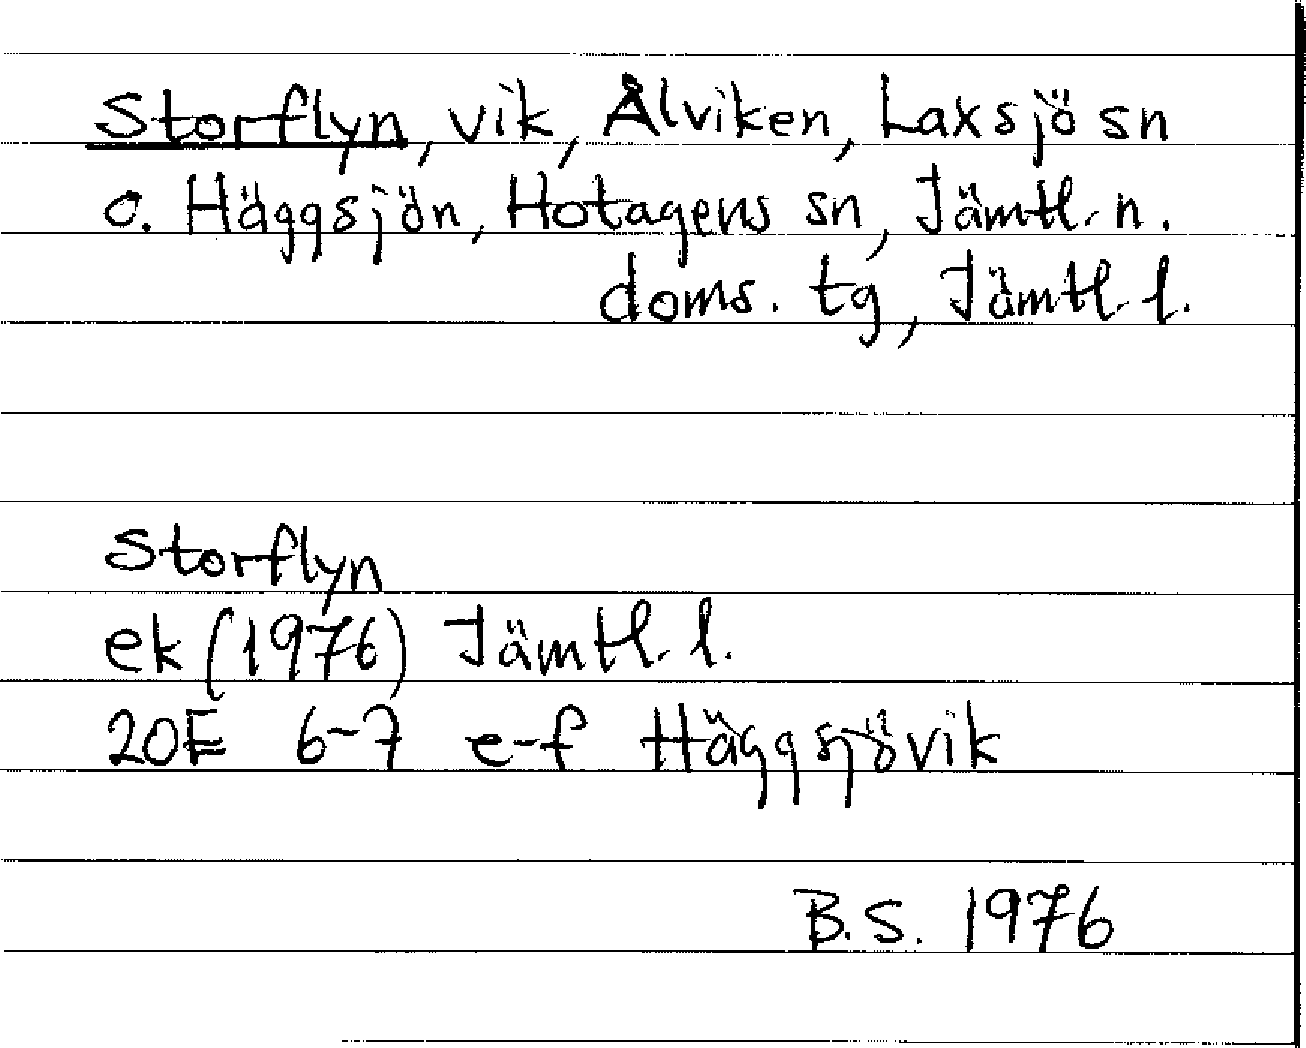 Storflyn, vik, Ålviken, Laxsjö sn
o. Häggsjön, Hotagens sn, Jämtl. n.
doms. tg, Jämtl. l.
Storflyn
ek (1976) Jämtl. l.
20E 6-7 e-f Häggsjövik
B.S. 1976